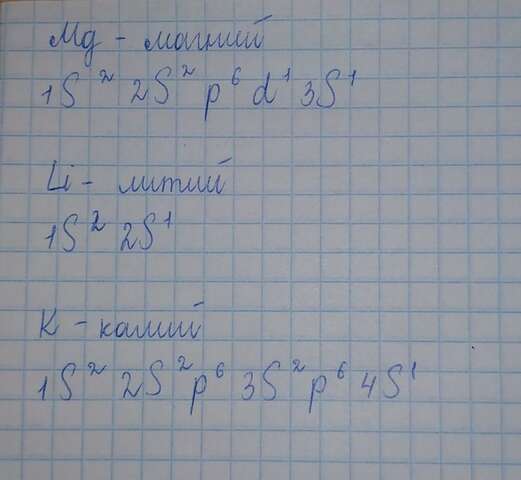 Mg - магний
1S² 2S² p⁶ d¹ 3S¹
Li - литий
1S² 2S¹
K - калий
1S² 2S² p⁶ 3S² p⁶ 4S¹